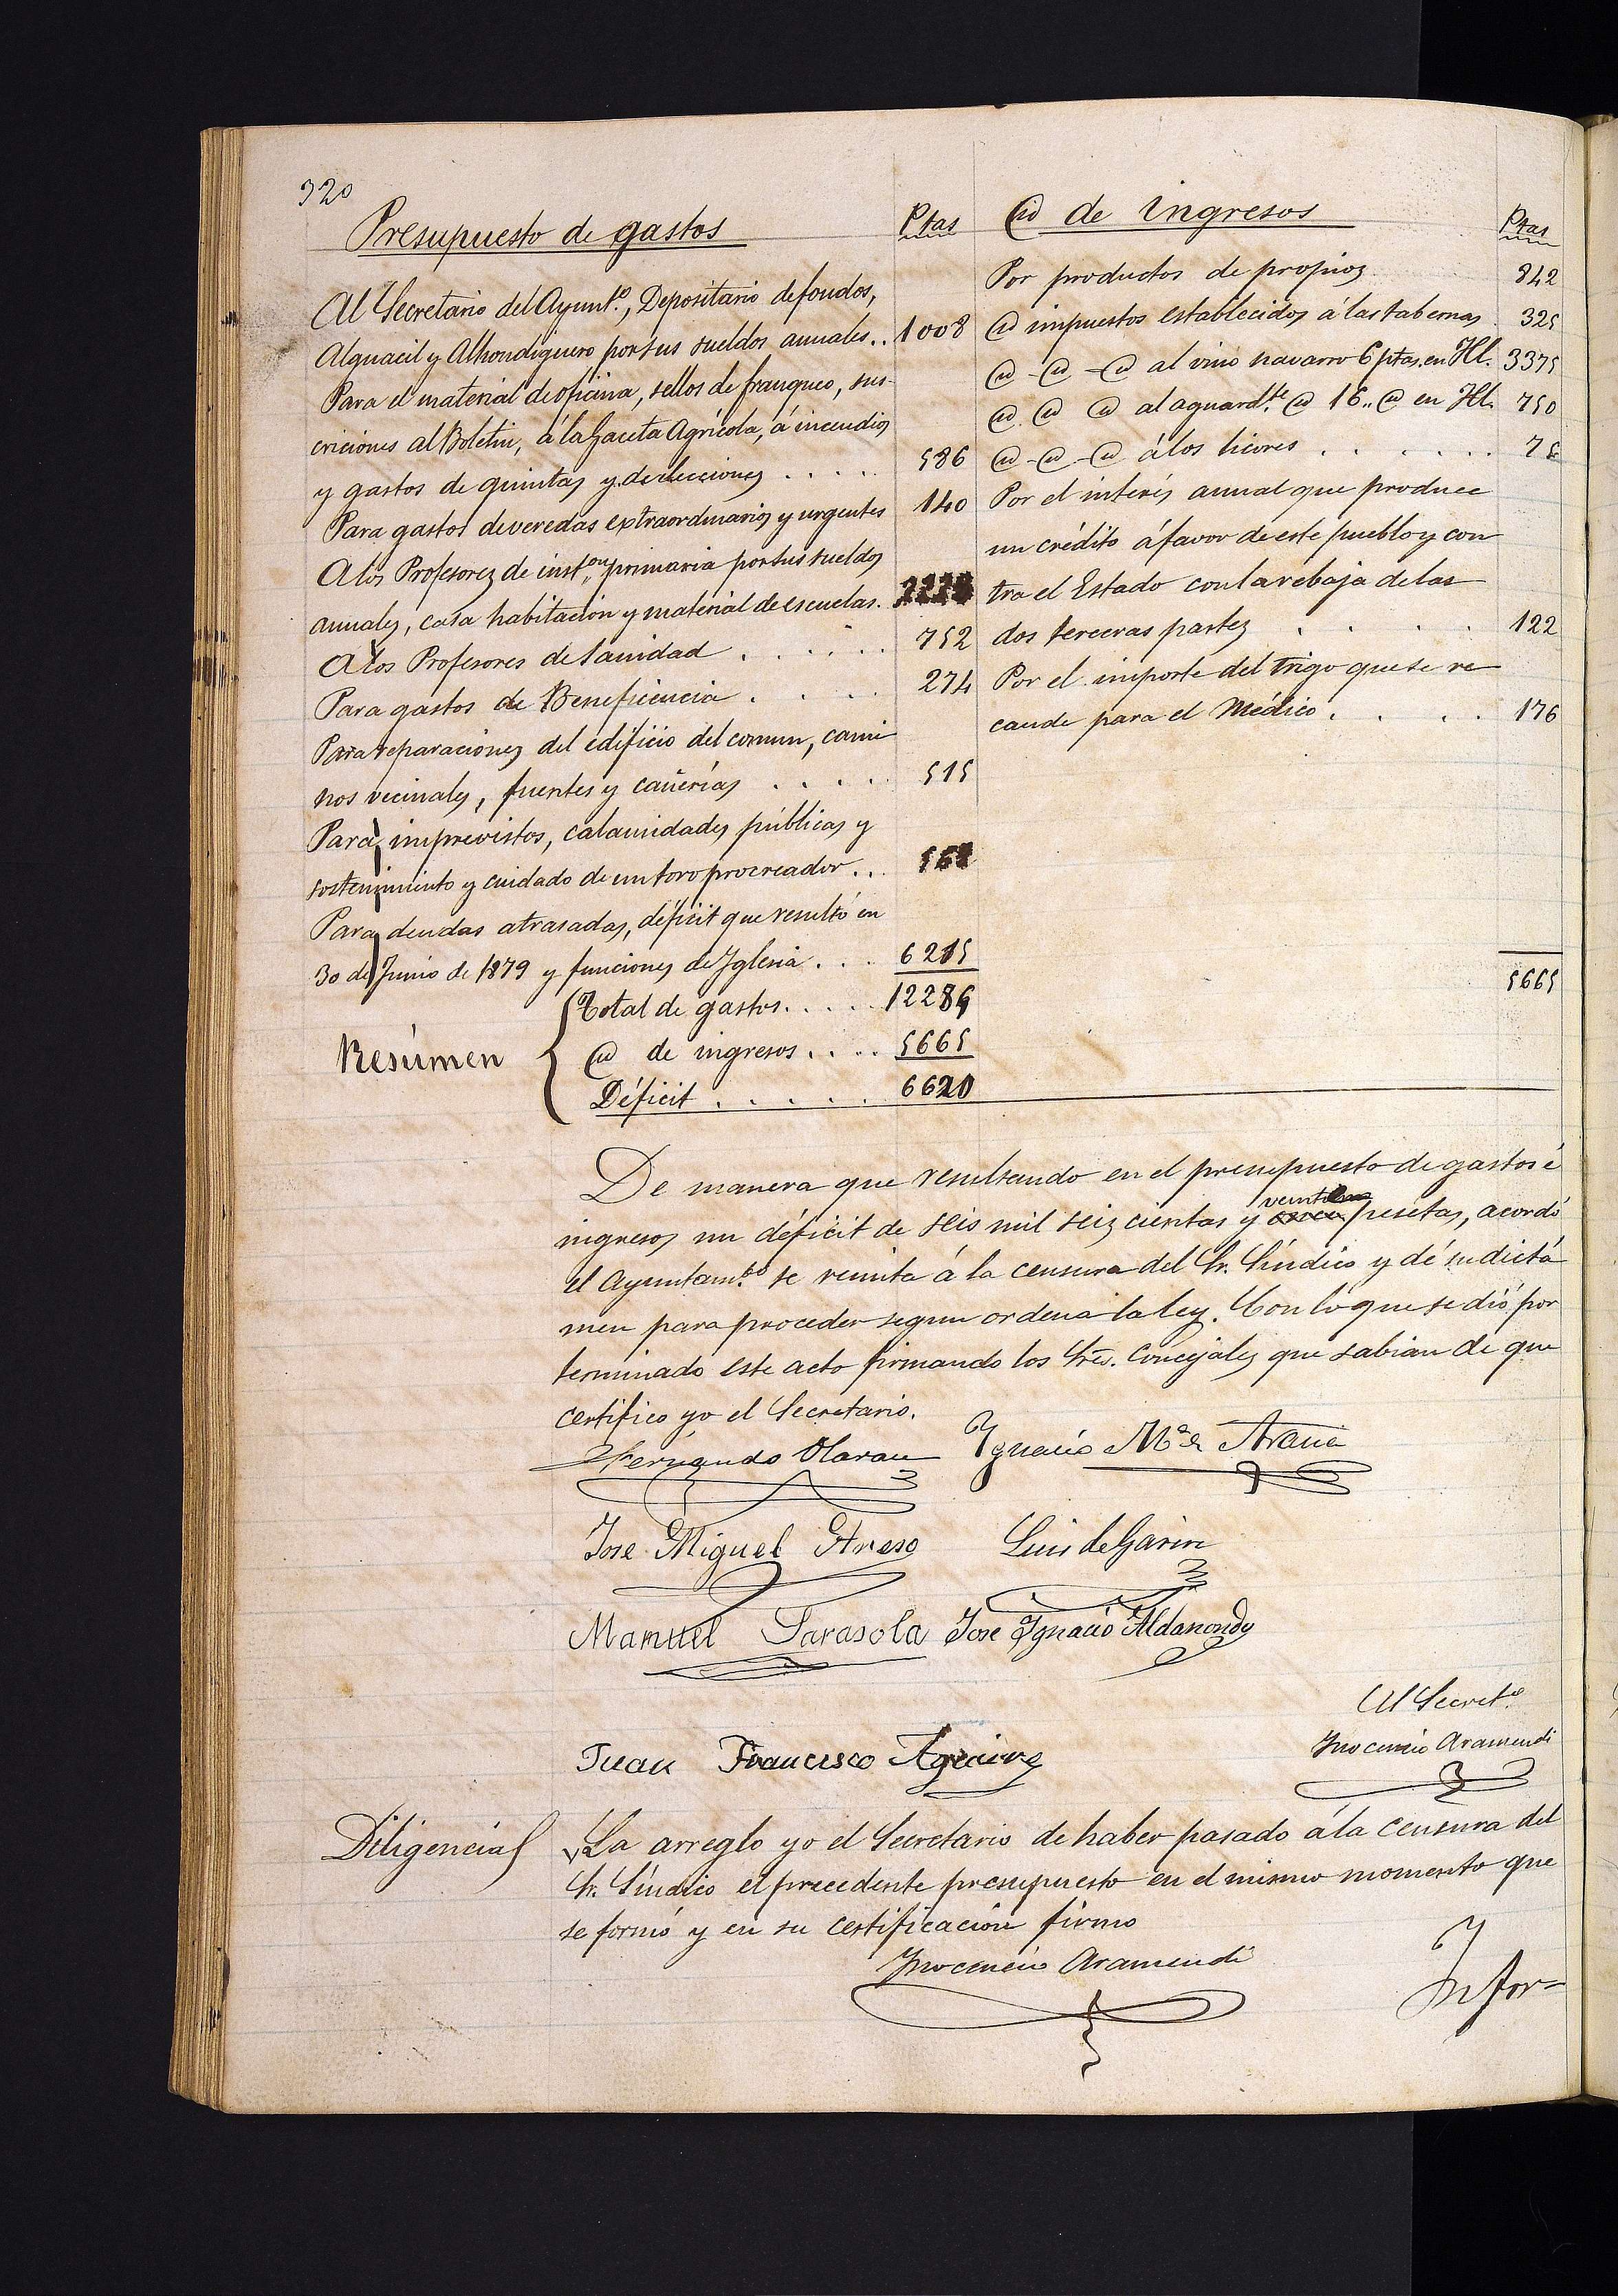 320
Presupuesto de gastos
Ptas
Al Secretario del Ayunt.º, Depositario de fondos,
Alguacil y Alhondiguero por sus sueldos anuales.. 1008
Para el material de oficina, sellos de franqueo, sus-
criciones al Boletin, á la Gaceta Agrícola, á incendios
y gastos de quintas y de elecciones . . . . . 586
Para gastos de veredas extraordinarios y urgentes 140
A los Profesores de inst.on primaria por sus sueldos
anuales, casa habitación y material de escuelas.
A los Profesores de Sanidad . . . . . . 752
Para gastos de Beneficencia . . . . 274
Para reparaciones del edificio del comun, cami
nos vecinales, fuentes y cañerías . . . . 515
Para imprevistos, calamidades públicas y
sostenimiento y cuidado de un toro procreador . . .
Para deudas atrasadas, déficit que resultó en
30 de Junio de 1879 y funciones de Yglesia . . . 6215
Resúmen
Total de gastos. . . . . 12286
@ de ingresos. . . . . 5665
Déficit . . . . . . 6620
@ de ingresos
Ptas
Por productos de propios 842
@ impuestos establecidos á las tabernas 325
@ - @ - @ al vino navarro 6 ptas. en Hl. 3375
@ @ @ al aguard.te @ 16 „ @ en Hl. 750
@ - @ - @ á los licores . . . . . . . 75
Por el interés anual que produce
un crédito á favor de este pueblo y con
tra el Estado con la rebaja de las
dos terceras partes . . . . . 122
Por el importe del trigo que se re
caude para el Médico . . . . . 176
5665
De manera que resultando en el presupuesto de gastos é
ingresos un déficit de seis mil seiz cientas y pesetas, acordó
el Ayuntam.to se remita á la censura del Sr. Síndico y dé su dictá
men para proceder segun ordena la ley. Con lo que se dió por
terminado este acto firmando los Sres. Concejales que sabian de que
certifico yo el Secretario.
Fernando Olaran Ygnacio M.ª Arana
Jose Miguel Areso Luis de Garin
Manuel Sarasola Jose Ygnacio Aldanondo
Juan Francisco Aguirre
El Secret.º
Ynocencio Aramendi
Diligencia
La arreglo yo el Secretario de haber pasado á la censura del
Sr. Síndico el precedente presupuesto en el mismo momento que
se formó y en su certificación firmo
Ynocencio Aramendi
Infor=